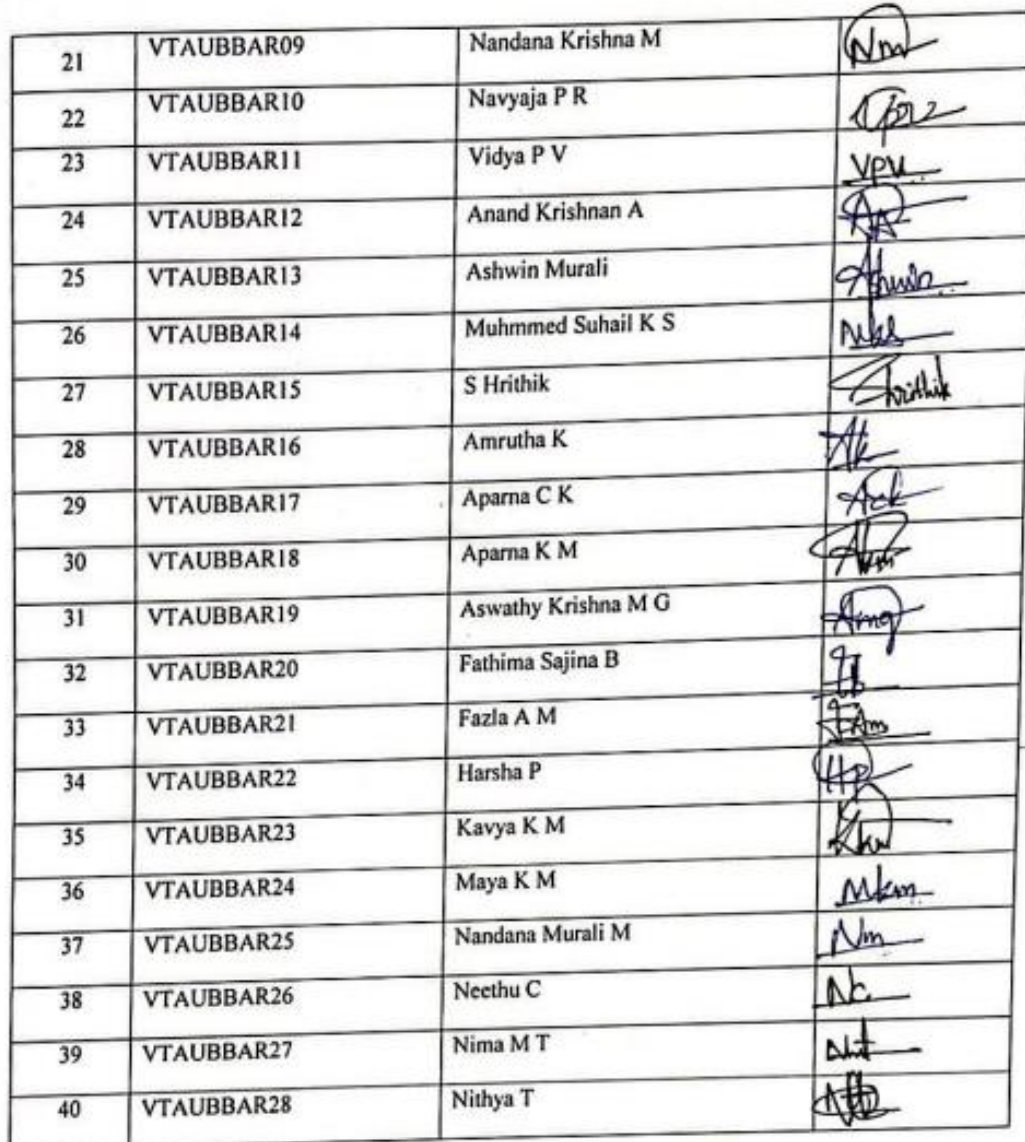 21 VTAUBBAR09 Nandana Krishna M Nm
22 VTAUBBAR10 Navyaja P R
23 VTAUBBAR11 Vidya P V VPV
24 VTAUBBAR12 Anand Krishnan A
25 VTAUBBAR13 Ashwin Murali Ashwin
26 VTAUBBAR14 Muhmmed Suhail K S
27 VTAUBBAR15 S Hrithik Shrithik
28 VTAUBBAR16 Amrutha K Ak
29 VTAUBBAR17 Aparna C K Ack
30 VTAUBBAR18 Aparna K M Akm
31 VTAUBBAR19 Aswathy Krishna M G Amg
32 VTAUBBAR20 Fathima Sajina B
33 VTAUBBAR21 Fazla A M FAm
34 VTAUBBAR22 Harsha P HP
35 VTAUBBAR23 Kavya K M Kkm
36 VTAUBBAR24 Maya K M Mkm
37 VTAUBBAR25 Nandana Murali M Nm
38 VTAUBBAR26 Neethu C Nc
39 VTAUBBAR27 Nima M T
40 VTAUBBAR28 Nithya T